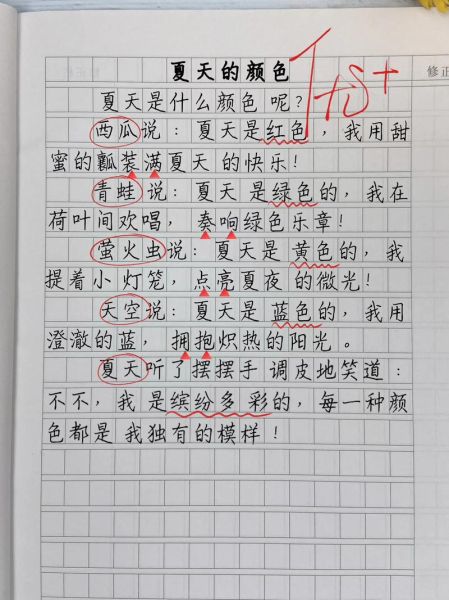 夏天的颜色
修正
夏天是什么颜色呢?
西瓜说:夏天是红色,我用甜
蜜的瓤装满夏天的快乐!
青蛙说:夏天是绿色的,我在
荷叶间欢唱,奏响绿色乐章!
萤火虫说:夏天是黄色的,我
提着小灯笼,点亮夏夜的微光!
天空说:夏天是蓝色的,我用
澄澈的蓝,拥抱炽热的阳光。
夏天听了摆摆手调皮地笑道:
不不,我是缤纷多彩的,每一种颜
色都是我独有的模样!